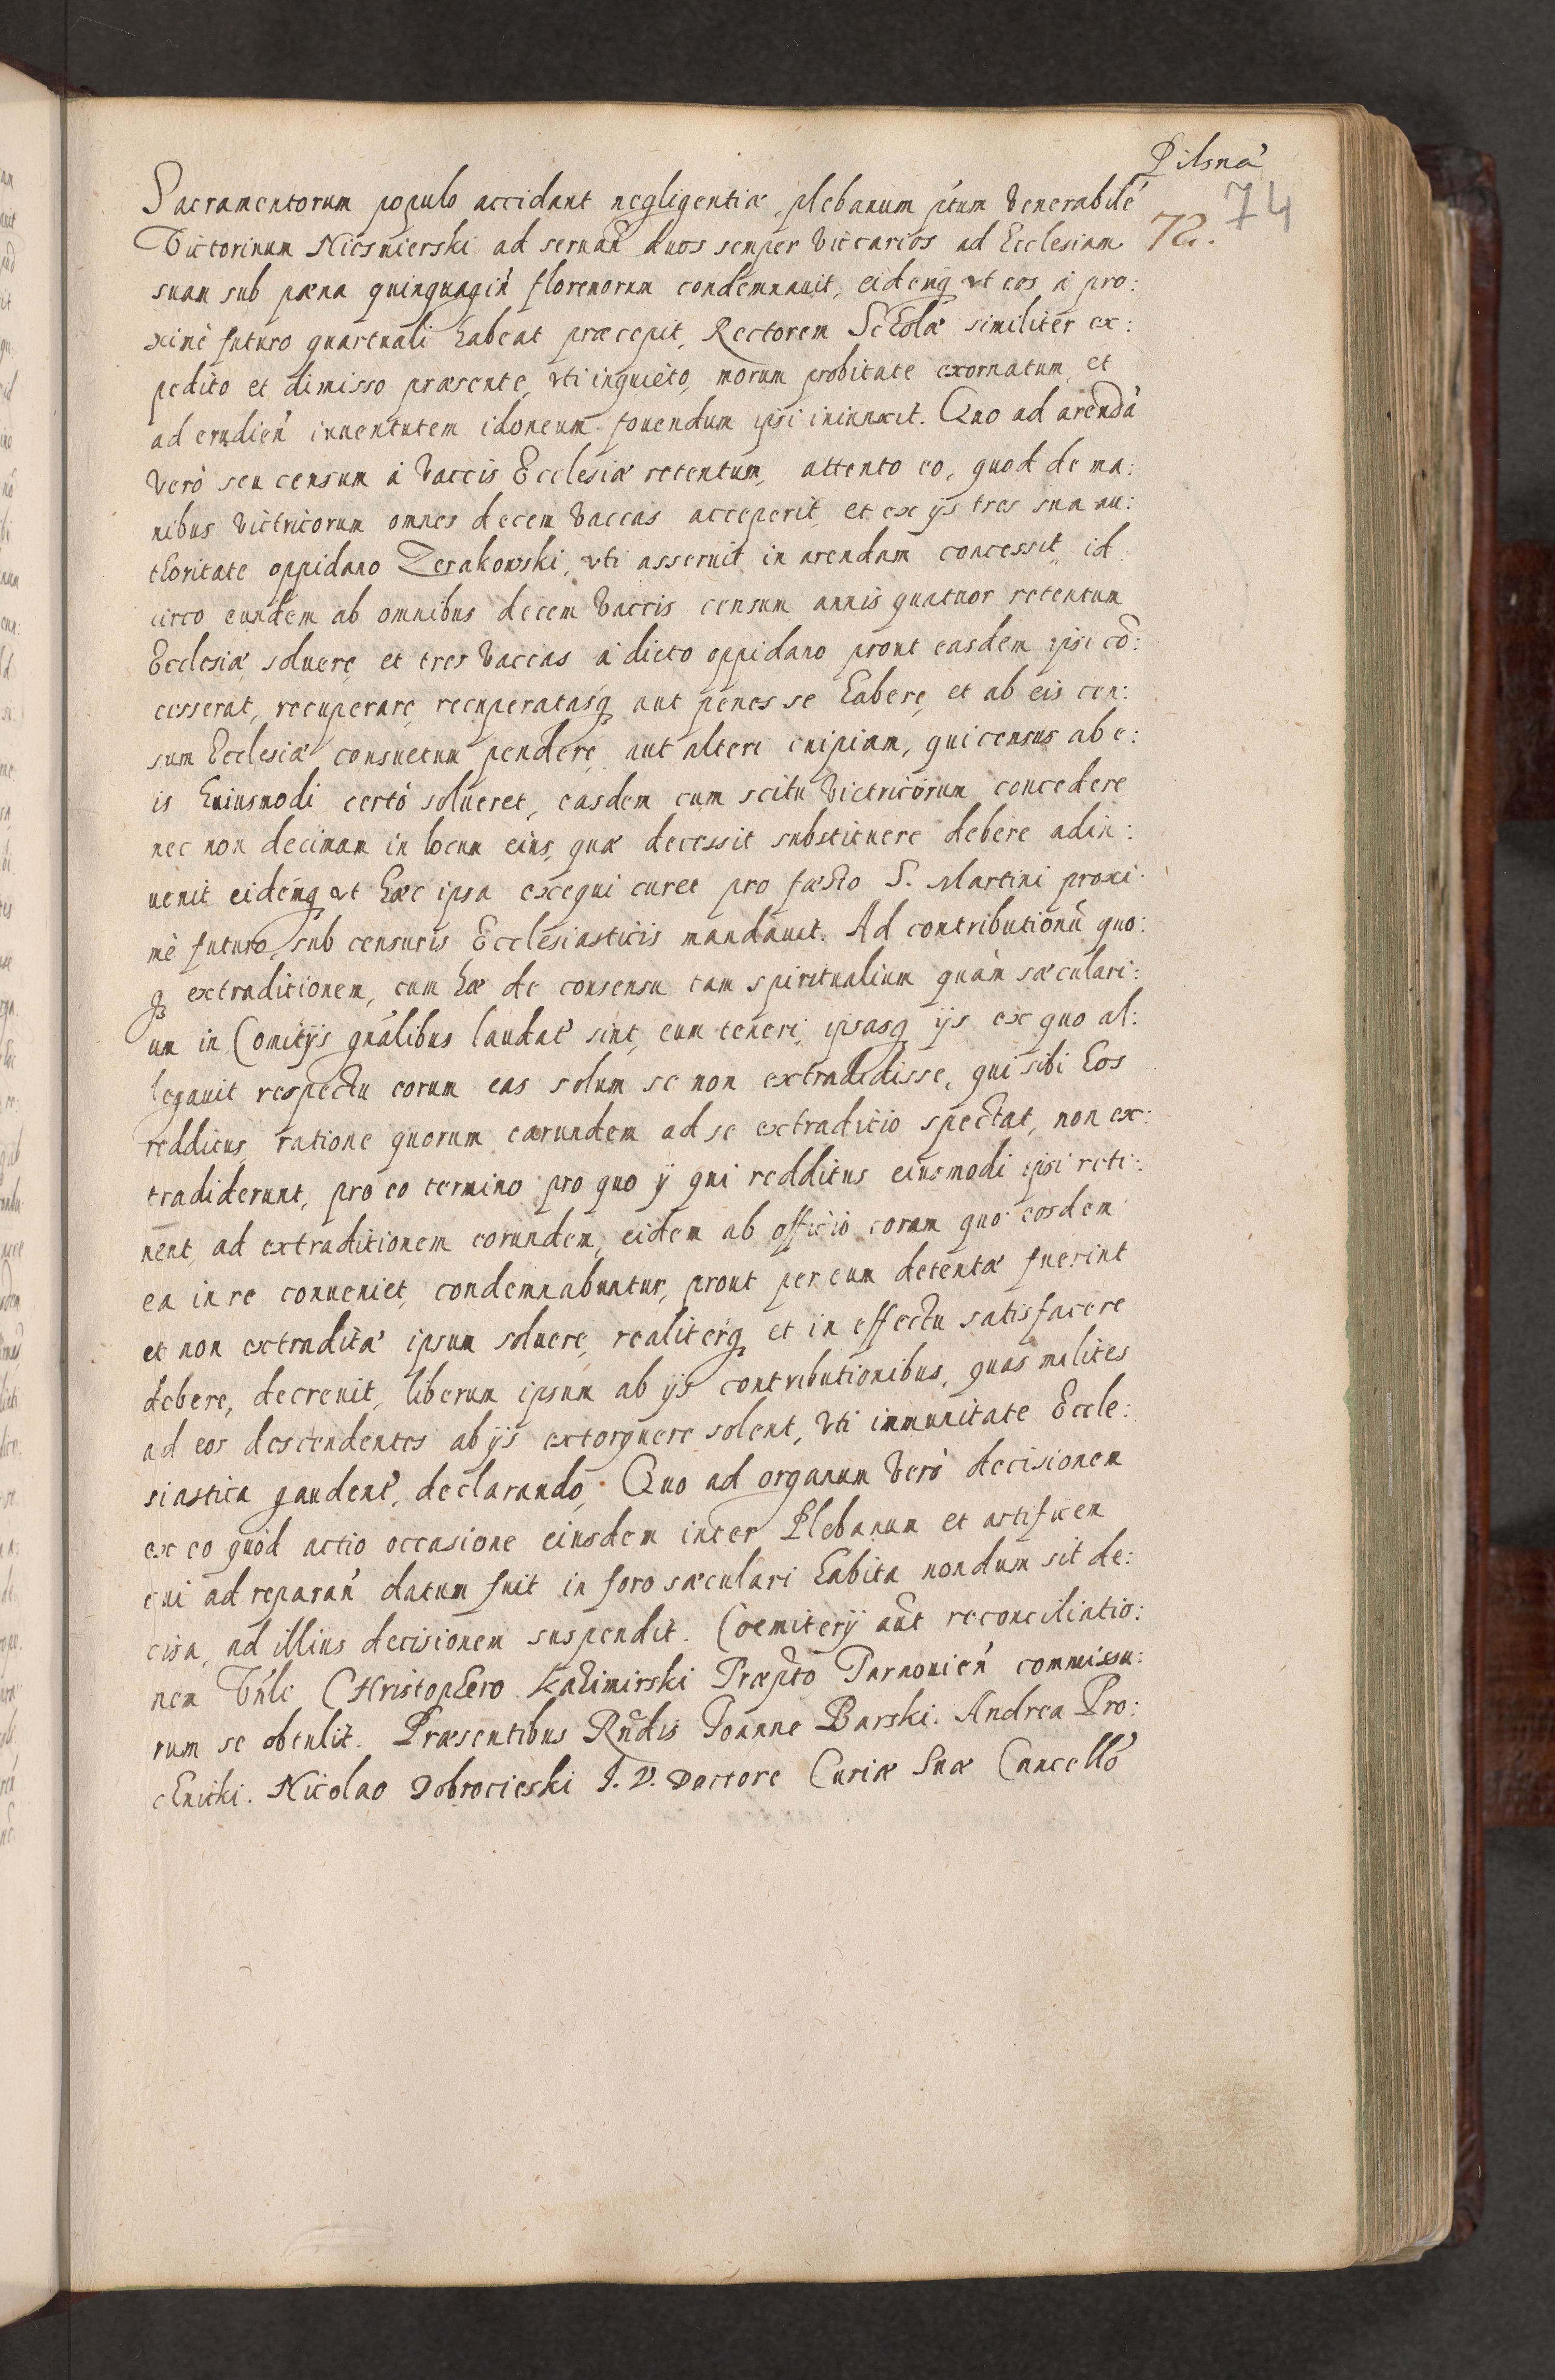 Pilsna
74
72.
Sacramentorum populo accidant negligentiæ, plebanum ptum Venerabile
Victorinum Niesmierski ad seruan̄ duos semper Viccarios ad Ecclesiam
suam sub pæna quinquagin̄ florenorum condemnauit, eidemq̄ vt eos à pro:
ximè futuro quartuali habeat præcepit, Rectorem Scholæ similiter ex:
pedito et dimisso præsente, vti inquieto, morum probitate exornatum, et
ad erudien̄ iuuentutem idoneum fouendum ipsi iniunxit. Quo ad arendā
verò seu censum à Vaccis Ecclesiæ retentum, attento eo, quod de ma:
nibus Victricorum omnes decem Vaccas acceperit, et ex ijs tres sua au:
thoritate oppidano Zerakowski, vti asseruit in arendam concessit, id
circo eundem ab omnibus decem Vaccis censum annis quatuor retentum
Ecclesiæ soluere, et tres Vaccas à dicto oppidano prout easdem ipsi cō:
cesserat, recuperare, recuperatasq̄ aut penes se habere, et ab eis cen:
sum Ecclesiæ consuetum pendere, aut alteri cuipiam, qui census ab e:
is huiusmodi certò solueret, easdem cum scitu Victricorum concedere
nec non decimam in locum eius, quæ decessit substituere debere adin:
uenit eidemq̄ vt hæc ipsa exequi curet pro fæsto S. Martini proxi:
mè futuro, sub censuris Ecclesiasticis mandauit. Ad contributionū quo:
q̄ extraditionem, cum hæ de consensu tam spiritualium quàm sæculari:
um in Comitijs gn̄alibus laudatæ sint, eum teneri, ipsasq̄ ijs ex quo al:
legauit respectu eorum eas solum se non extradidisse, qui sibi hos
redditus, ratione quorum earundem ad se extraditio spectat, non ex:
tradiderunt, pro eo termino pro quo ij qui redditus eiusmodi ipsi reti:
nent, ad extraditionem eorundem, eidem ab officio coram quo eosdem
ea in re conueniet, condemnabuntur, prout per eum detentæ fuerint
et non extraditæ ipsum soluere, realiterq̄ et in effectu satisfacere
debere, decreuit, liberum ipsum ab ijs contributionibus, quas milites
ad eos descendentes ab ijs extorquere solent, vti immunitate Eccle:
siastica gauden̄t, declarando. Quo ad organum Verò decisionem
ex eo quòd actio occasione eiusdem inter Plebanum et artificem
cui ad reparan̄ datum fuit in foro sæculari habita nondum sit de:
cisa, ad illius decisionem suspendit. Cœmiterij aūt reconciliatio:
nem Vn̄li Christophero Kazimirski Præpto Tarnouien̄ commissu:
rum se obtulit. Præsentibus Rn̄dis Joanne Barski. Andrea Pro:
chnicki. Nicolao Dobrocieski I. V. Doctore Curiæ Suæ Cancellō